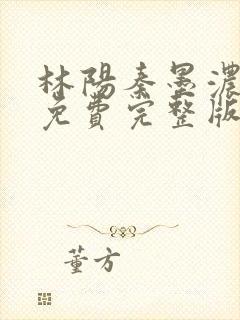 林陽秦墨濃
免費完整版
董方